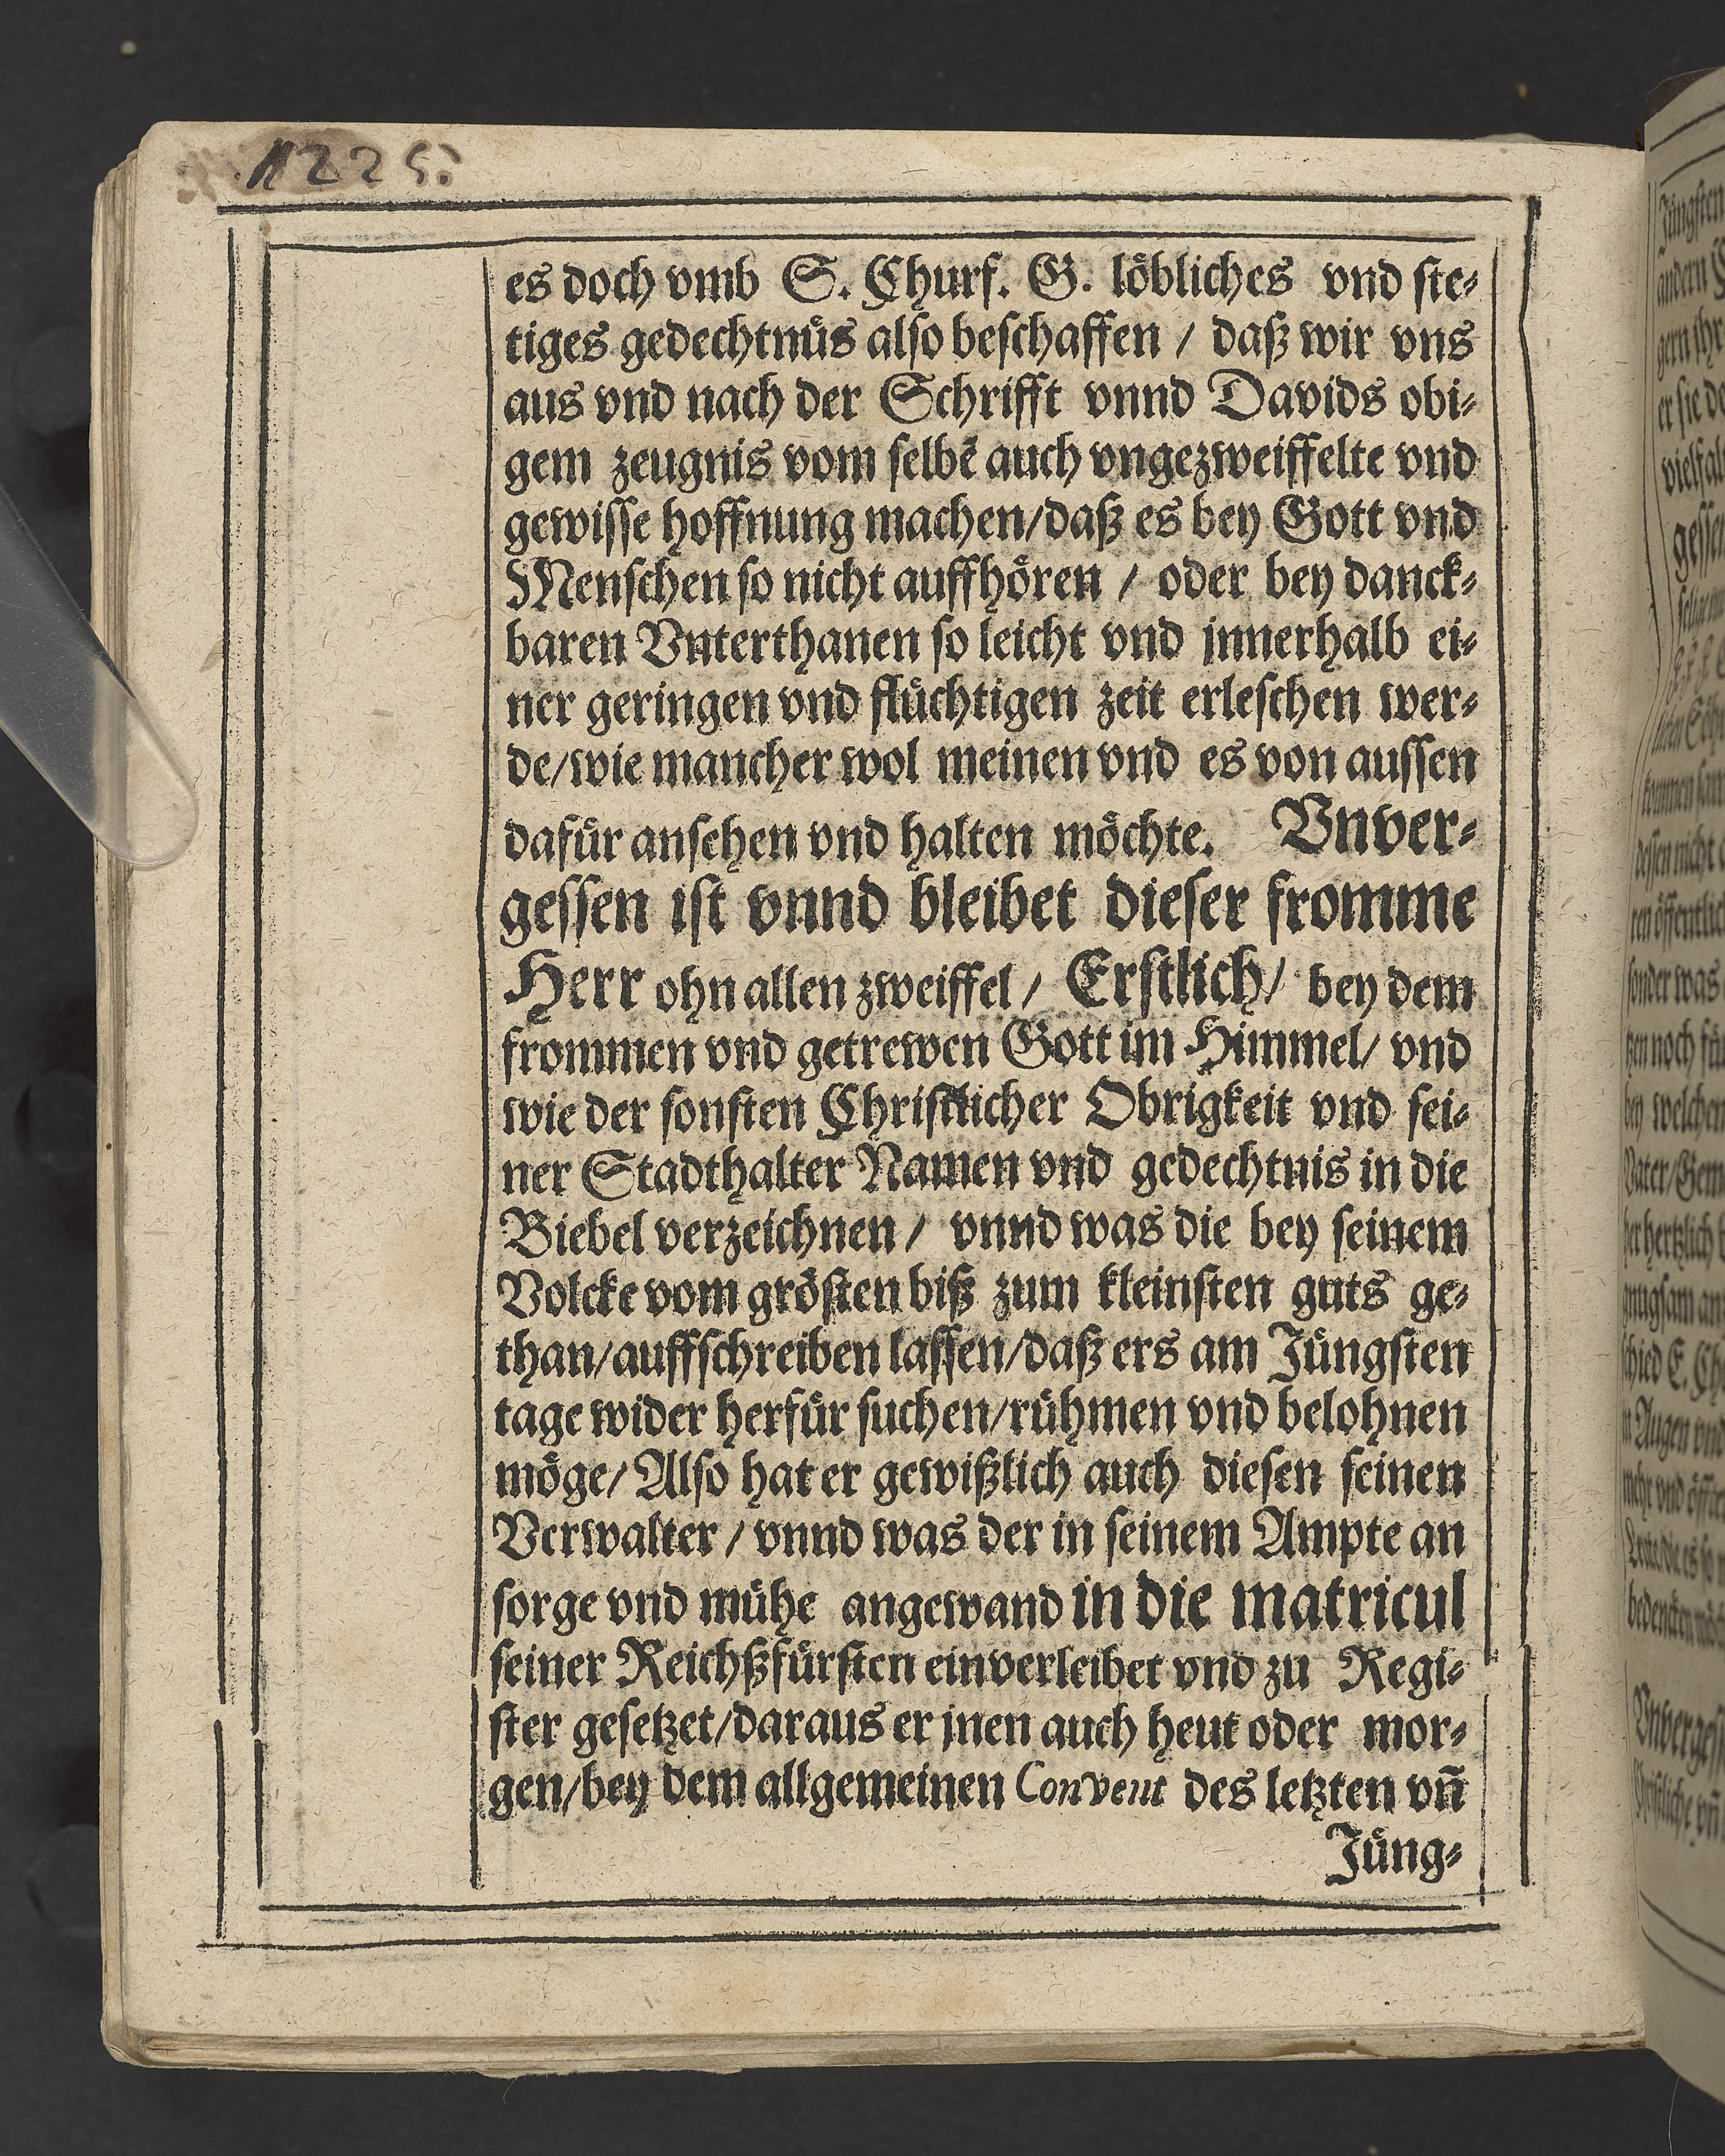 1225.
es doch vmb S. Churf. G. löbliches vnd ste-
tiges gedechtnüs also beschaffen / daß wir vns
aus vnd nach der Schrifft vnnd Davids obi-
gem zeugnis vom selbẽ auch vngezweiffelte vnd
gewisse hoffnung machen/daß es bey Gott vnd
Menschen so nicht auffhören / oder bey danck-
baren Vnterthanen so leicht vnd jnnerhalb ei-
ner geringen vnd flüchtigen zeit erleschen wer-
de/wie mancher wol meinen vnd es von aussen
dafür ansehen vnd halten möchte. Vnver-
gessen ist vnnd bleibet dieser fromme
Herr ohn allen zweiffel / Erstlich/ bey dem
frommen vnd getrewen Gott im Himmel/ vnd
wie der sonsten Christlicher Obrigkeit vnd sei-
ner Stadthalter Namen vnd gedechtnis in die
Biebel verzeichnen / vnnd was die bey seinem
Volcke vom grösten biß zum kleinsten guts ge-
than/auffschreiben lassen/daß ers am Jüngsten
tage wider herfür suchen/rühmen vnd belohnen
möge/ Also hat er gewißlich auch diesen seinen
Verwalter / vnnd was der in seinem Ampte an
sorge vnd mühe angewand in die matricul
seiner Reichßfürsten einverleibet vnd zu Regi-
ster gesetzet/daraus er jnen auch heut oder mor-
gen/bey dem allgemeinen Convent des letzten vñ
Jüng-